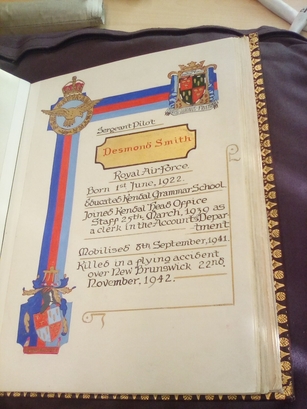 Sergeant Pilot
Desmond Smith
Royal Air Force.
Born 1st June, 1922.
Educated Kendal Grammar School
Joined Kendal Head Office
Staff 25th March, 1939 as
a clerk in the Accounts Depar-
tment
Mobilised 8th September, 1941.
Killed in a flying accident
over New Brunswick 22nd
November, 1942.